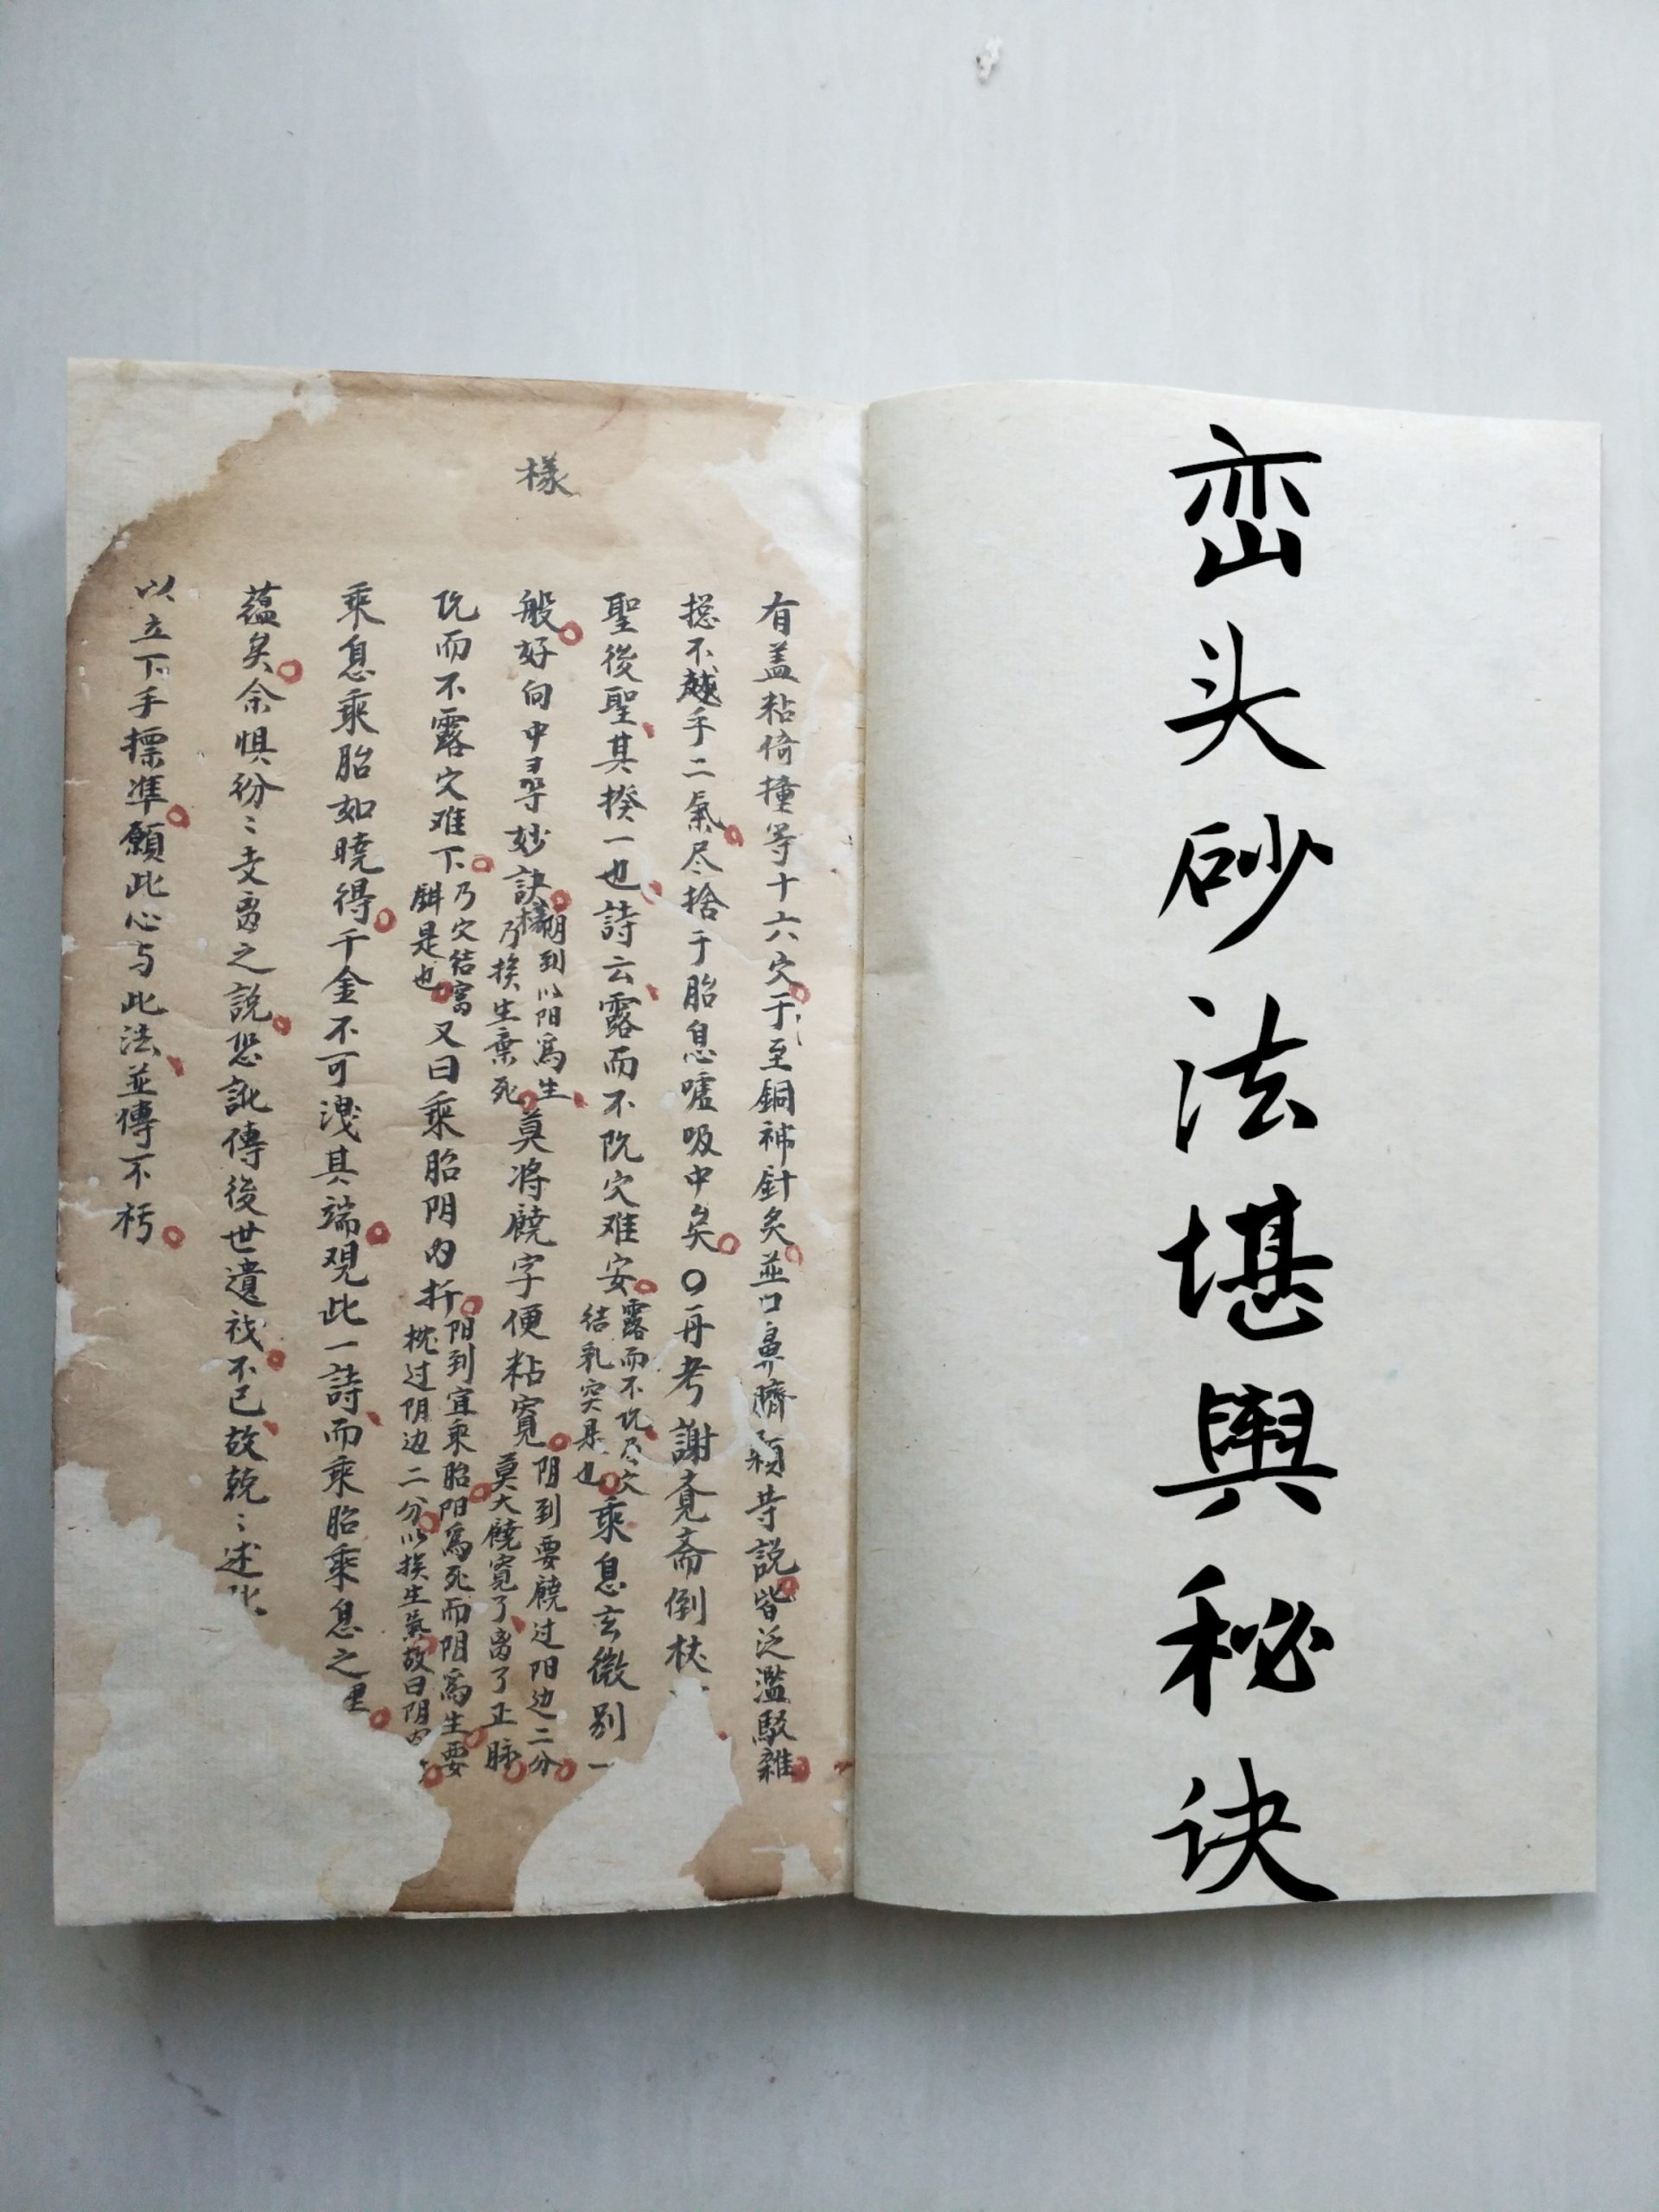 峦头砂法堪舆秘诀
樣
有盖粘倚撞等十六穴于至銅神針灸並口鼻臍頦等説皆泛濫駁雜
捴不越乎二氣尽捨于胎息噓吸中矣〇再考謝覔斋倒杖
聖後聖其揆一也詩云露而不阬穴难安露而不阬乃穴結乳突是也乘息玄微别一
般好向中寻妙訣朝到以阳爲生乃挨生棄死莫将饒字便粘寬阴到要饒过阳边二分莫大饒寬了离了正脉
阬而不露穴难下乃穴結窩鉗是也又曰乘胎阴内扦阳到宜乘胎阳爲死而阴爲生要枕过阴边二分以挨生氣故曰阴内
乘息乘胎如曉得千金不可洩其端观此一詩而乘胎乘息之
蕴矣余惧纷〻支离之説恐訛傳後世遺祸不已故乾〻述此
以立下手標準願此心与此法並傳不朽